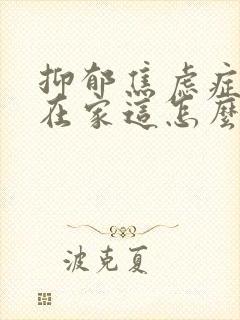 抑郁焦虑症
在家這怎麼
波克夏